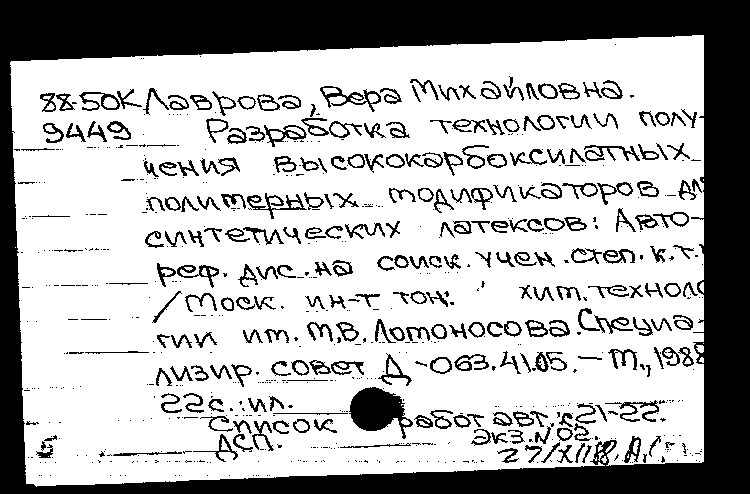 88-50К Лаврова, Вера Михайловна.
9449 Разработка технологии полу-
чения высококарбоксилатных
полимерных модификаторов дл
синтетических латексов: Авто-
реф. дис. на соиск. учен. степ. к.т.
/Моск. ин-т тон. хим. техноло
гии им. М.В. Ломоносова. Специа-
лизир. совет Д-063.41.05. – М., 1988
22 с.: ил.
Список работ авт.: с 21-22.
ДСП. Экз. N 02.
Б 27/XII 88.